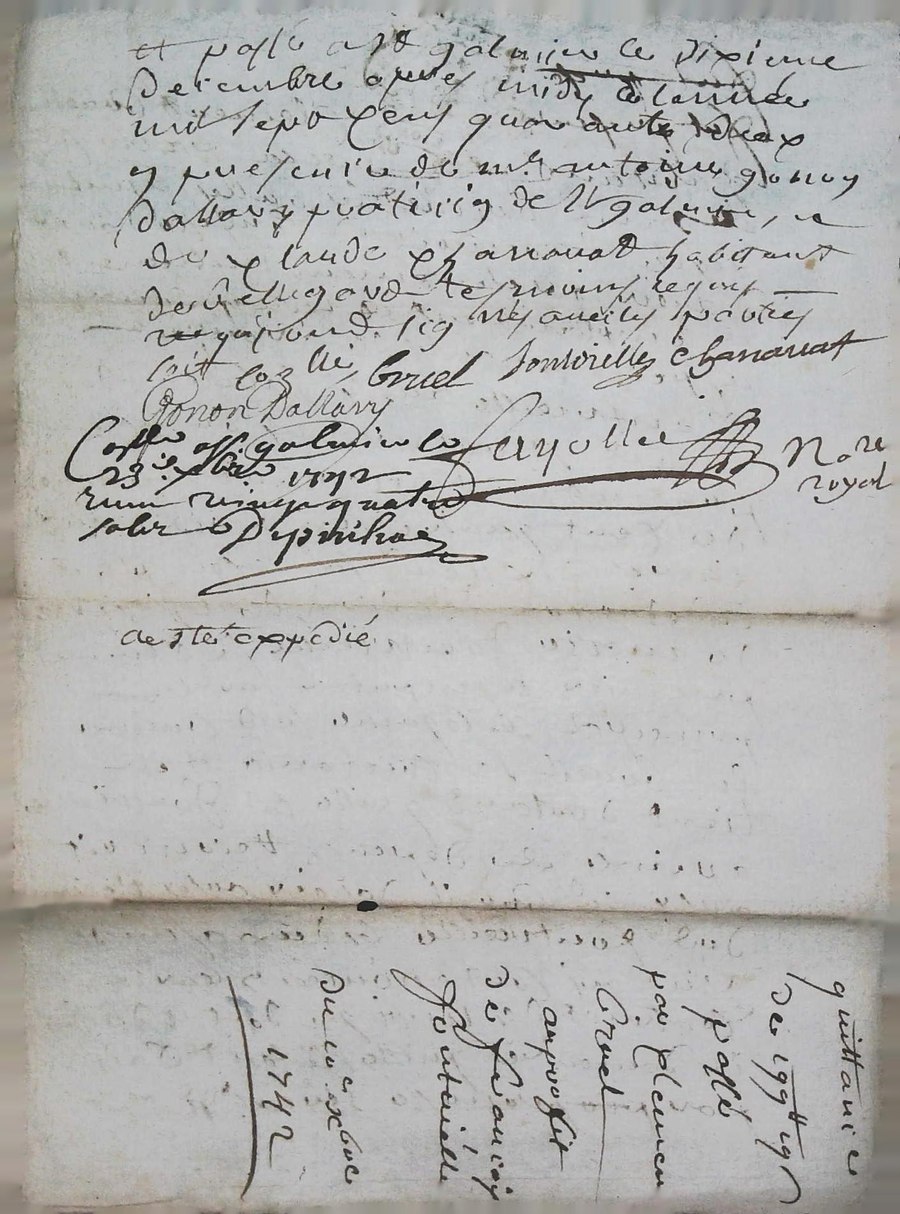 et passé a St galmier le dixieme
Decembre apres midy de lannée
mil sept cens quarante deux
en presence de mr antoine gonon
dallary praticien de St galmier, et
de claude charavat habitant
de bellegarde tesmoins requis
qui ont signés avec les parties
soit
bruel fontvielle charavat
Gonon Dallary
Collé a St galmier le
23e xbre 1742
recu vingt quatre
sols
Fayolle Nore
royal
a esté expedié
quittance
De
passé
par clemen
bruel
au profit
de francois
fontvielle
Du 10e xbre
1742